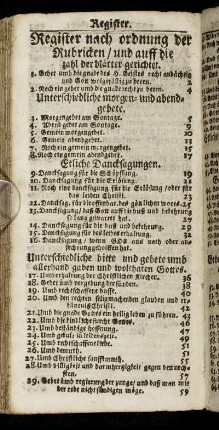 Register.
Register nach ordnung der
Rubricken / und auff die
zahl der blätter gerichtet.
1. Gebet umb die gnade des H. Geistes recht andächtig
und Gott wolgefällig zu beten. 2
2. Noch ein gebet umb die gnade recht zu beten. 4
Unterschiedliche morgen- und abend-
gebete.
3. Morgengebet am Sontage. 5
4. Abend gebet am Sontage. 9
5. Gemein morgengebet. 11
6. Gemein abendgebet. 13
7. Noch ein gemein morgengebet. 15
8. Noch ein gemein abendgebet. 17
Etliche Dancksagungen.
9. Dancksagung für die Schöpffung. 19
10. Dancksagung für die Erlösung. 21
11. Noch eine dancksagung für die Erlösung oder für
das leiden Christi. 23
12. Dancksag. für die offenb. des göttlichen worts. 25
13. Dancksagung / daß Gott auff die buß und bekehrung
so lang gewartet hat. 27
14. Dancksagung für die buß und bekehrung. 29
15. Dancksagung für des leibes erhaltung. 32
16. Dancksagung / wenn Gott aus noth oder an-
fechtung geholffen hat. 35
Unterschiedliche bitte und gebete umb
allerhand gaben und wolthaten Gottes.
17. Umb erhaltung der Christlichen Kirchen. 36
18. Gebet umb vergebung der sünden. 38
19. Umb rechtschaffene busse. 40
20. Umb den rechten seligmachenden glauben und
des Christi. 43
21. Umb die gnade Gottes ein heilig leben zu führen. 43
22. Umb die kindliche furcht Gottes. 46
23. Umb beständige hoffnung. 47
24. Umb gedult in leidenszeit. 49
25. Umb rechtschaffene liebe. 51
26. Umb demuth. 51
27. Umb Christliche sanfftmuth. 55
28. Umb billigkeit und barmhertzigkeit gegen den nech-
sten. 57
29. Gebet umb regierung der zunge / und daß man mit
der rede nicht sündigen möge. 59